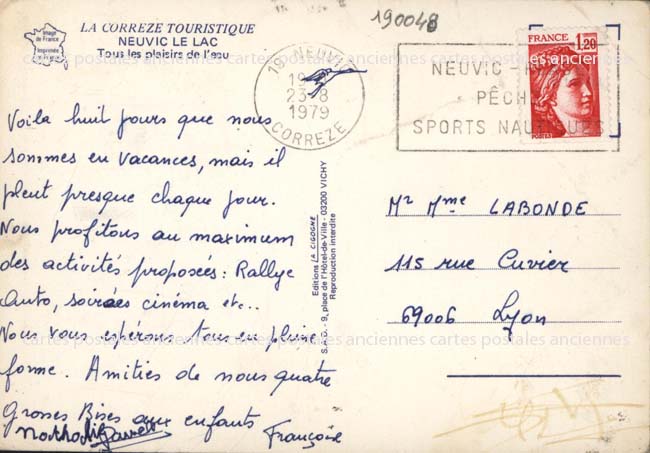 190048
Image de France
Imprimée
LA CORREZE TOURISTIQUE
NEUVIC LE LAC
Tous les plaisirs de l'eau
cartes postales anciennes cartes postales anciennes cartes postales anciennes
19 NEUVIC
23-8
1979
CORREZE
NEUVIC
PÊCHE
SPORTS NAUTIQUES
FRANCE 1,20
Voila huit jours que nous
sommes en vacances, mais il
pleut presque chaque jour.
Nous profitons au maximum
des activités proposées : Rallye
Auto, soirées cinéma etc..
Nous vous espérons tous en pleine
forme. Amitiés de nous quatre
Grosses Bises aux enfants
Françoise
Editions LA CIGOGNE
S.A.B.O. - 9, place de l'Hôtel-de-Ville - 03200 VICHY
Reproduction interdite
Mr Mme LABONDE
115 rue Cuvier
69006 Lyon
cartes postales anciennes cartes postales anciennes cartes postales anciennes